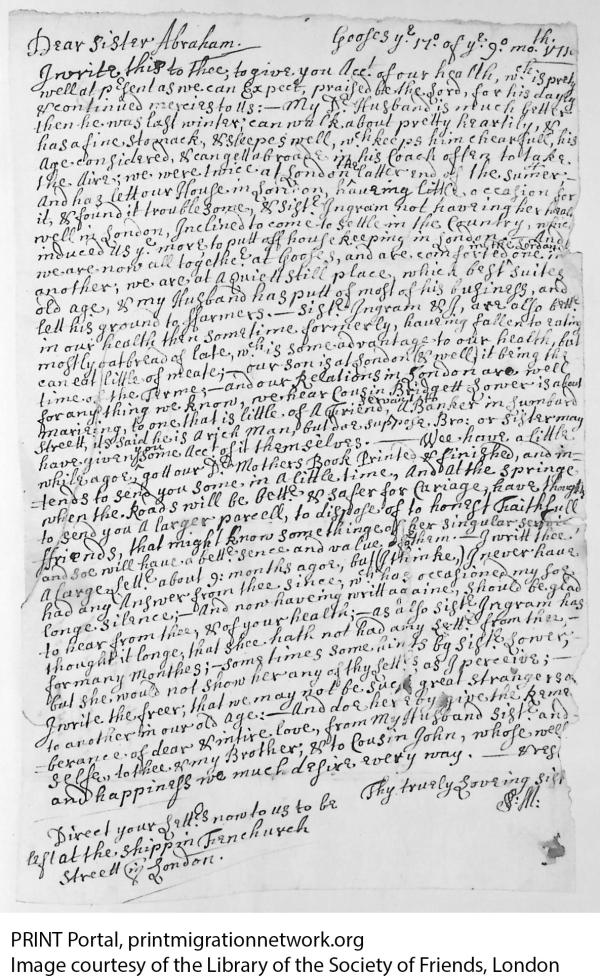 Dear Sister Abraham.
Gooses ye. 17o. of ye. 9o. mo.th. 1711
I write this to thee, to give you Acct. of our health, wch. is prety
well at psent as we can Expect, praised be the Lord, for his dayly
& continued mercies to us:— My Dr. Husband is much better
then he was last winter; can walk about pretty heartily, &
has a fine stomack, & sleeps well, wch. keeps him chearfull, his
Age considered, & can get abroad in his Coach often to take
the Aire; we were twice at London the latter end of the sumer:—
And has lett our House in London, haveing little occasion for
it, & found it troublesome, & Sistr. Ingram not haveing her health
well in London, Inclined to come to settle in the Country, which
induced us ye. more to putt off house keeping in London:— And
we are now all together at Gooses, and are comforted one in
another; we are at a Quiett still place, which best suites
old age, & my Husband has putt of most of his buisness, and
lett his ground to ffarmers.— Sistr. Ingram & I, are also bettr.
in our health then sometime formerly, haveing fallen to eating
mostly oatbread of late, wch. is some advantage to our health, but
can eat little of meate;— our Son is at London & well, it being the
time of the Terme;— and our Relations in London are well
for any thing we know, we hear Cousin Bridgett Lower is about
marieing, to one that is little of A ffriend, A Banker in Lumbard
Streett, its said he is a rich Man, but doe suppose Bro: or Sister may
have given you some Acct. of it themselves.— Wee have a little
while agoe, gott our Dr. Mothers Book Printed & finished, and in=
=tends to send you some in a little time, And at the springe
when the Roads will be bettr. & safer for Cariage, have thoughts
to send you A larger parcell, to dispose of to honest Faithfull
ffriends, that might know something of her singular service
and soe will have a bettr. sence and value of them.— I writt thee
A large Lettr. about 9: months agoe, but (I thinke,) I never have
had any Answer from thee since, wch. has occasioned my soe
longe silence;— And now haveing writt againe, should be glad
to hear from thee, & of your health;— as also Sistr. Ingram has
thought it longe, that shee hath not had any Lettr. from thee,
for many Monthes;— some times some hints by Sistr. Lower;
but she would not show her any of thy Lettrs. as I perceive;—
I write the freer, that we may not be such great strangers one
to another in our old Age:— And doe hereby give the Reme
=berance of dear & intire love, from My Husband Sistr. and
Selfe, to thee & my Brother; & to Cousin John, whose well
and happiness we much desire every way.
Thy truely Loveing Sistr
Direct your Lettrs. now to us to be
left at the Shipp in Fenchurch
Streett in London.
PRINT Portal, printmigrationnetwork.org
Image courtesy of the Library of the Society of Friends, London